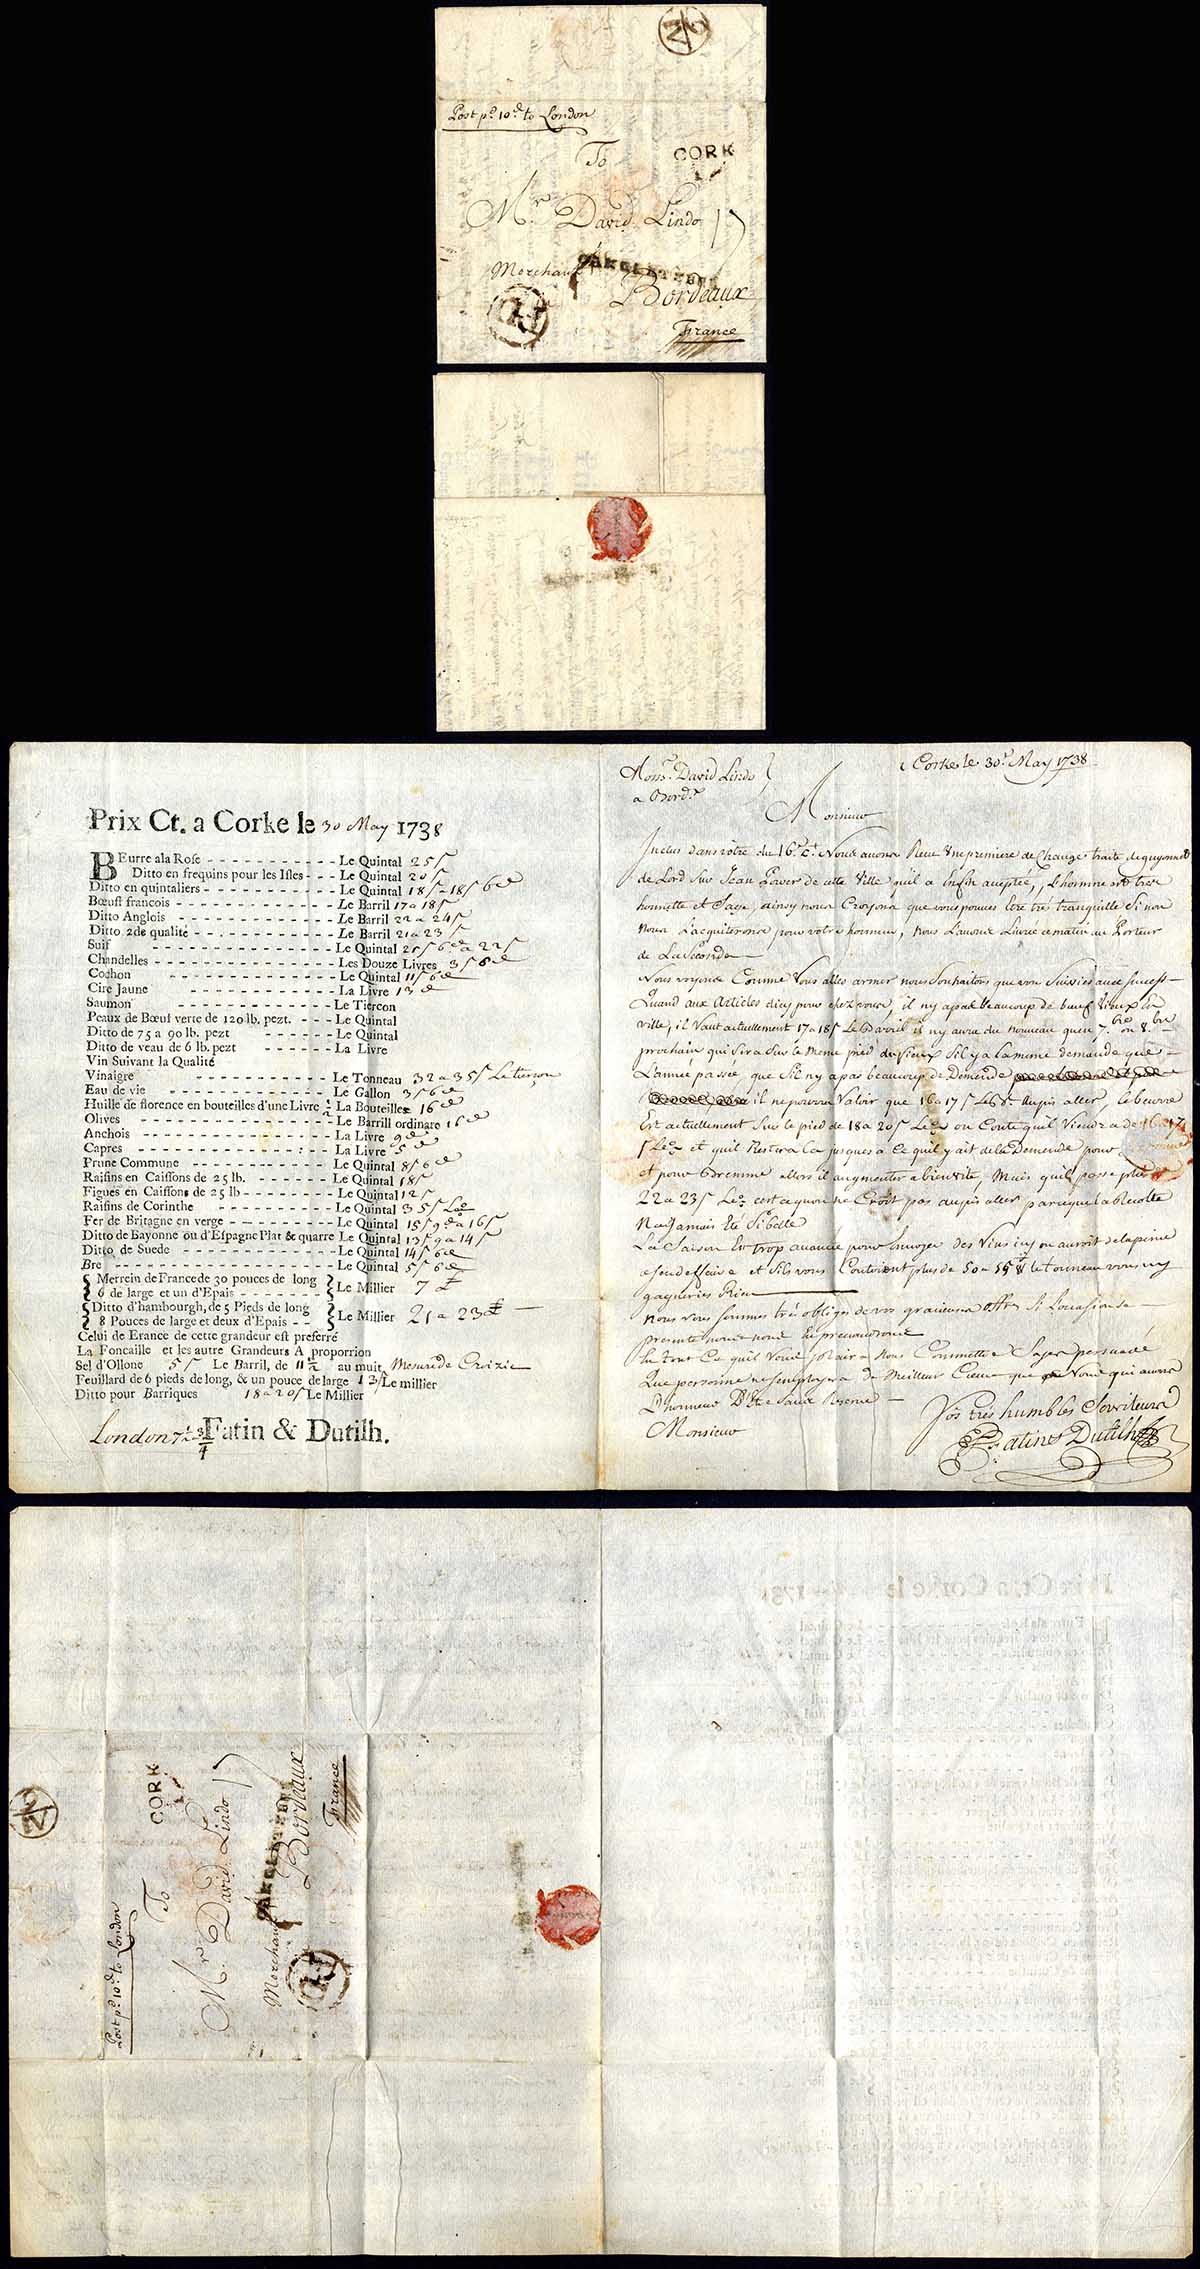 Post pd. 10d. to London
To
CORK
Mr. David Lindo
17
Merchant
D'ANGLETERRE
Bordeaux
France
Prix Ct. a Corke le 30 May 1738
BEurre ala Rose - - - Le Quintal 25ſ
Ditto en frequins pour les Isles - - - Le Quintal 20ſ
Ditto en quintaliers - - - Le Quintal 18ſ - 18ſ 6d
Bœuft francois - - - Le Barril 17 a 18ſ
Ditto Anglois - - - Le Barril 22 a 24ſ
Ditto 2de qualité - - - Le Barril 21 a 23ſ
Suif - - - Le Quintal 21ſ 6d a 22ſ
Chandelles - - - Les Douze Livres 3ſ 8d
Cochon - - - Le Quintal 11ſ 6d
Cire Jaune - - - La Livre 13d
Saumon - - - Le Tiercon
Peaux de Bœuf verte de 120 lb. pezt. - - - Le Quintal
Ditto de 75 a 90 lb. pezt - - - Le Quintal
Ditto de veau de 6 lb. pezt - - - La Livre
Vin Suivant la Qualité
Vinaigre - - - Le Tonneau 32 a 35ſ Le tierçon
Eau de vie - - - Le Gallon 3ſ 6d
Huille de florence en bouteilles d'une Livre ½ La Bouteille 16d
Olives - - - Le Barrill ordinare 16d
Anchois - - - La Livre 9d
Capres - - - La Livre 5d
Prune Commune - - - Le Quintal 8ſ 6d
Raisins en Caissons de 25 lb. - - - Le Quintal 18ſ
Figues en Caissons de 25 lb - - - Le Quintal 12ſ
Raisins de Corinthe - - - Le Quintal 35ſ
Fer de Britagne en verge - - - Le Quintal 15ſ 9d a 16ſ
Ditto de Bayonne ou d'Espagne Plat & quarre Le Quintal 13ſ 9 a 14ſ
Ditto de Suede - - - Le Quintal 14ſ 6d
Bre - - - Le Quintal 5ſ 6d
Merrein de France de 30 pouces de long
6 de large et un d'Epais - - - Le Millier 7 £
Ditto d'hambourgh, de 5 Pieds de long
8 Pouces de large et deux d'Epais - - Le Millier 21 a 23 £
Celui de France de cette grandeur est preferré
La Foncaille et les autre Grandeurs A proporrion
Sel d'Ollone 5ſ Le Barril, de 11½ au muit Mesure de Croizic
Feuillard de 6 pieds de long, & un pouce de large 13ſ Le millier
Ditto pour Barriques 18 a 20ſ Le Millier
London 7½ a ¾ Fatin & Dutilh.
Corke le 30r. May 1738
Monsr. David Lindo
a Bordx.
Monsieur
Inclus dans vôtre du 16e Ct. Nous avons Receu une premiere de Change traite de guyonnet
de Lord sur Jean Power de cette Ville qu'il a Enfin aceptée, L'homme est tres
honnette et Sage, ainsy nous Croyons que vous pouves Etre tres tranquille Si non
nous l'acquiterons pour votre honneur, nous Lavons Livrée ce matin au Porteur
de La Seconde
Nous voyons Comme Vous alles armer nous Souhaitons que vous Suissies avec Succes
Quand aux Articles dicy pour chez vous, il ny a pas beaucoup de beuf Vieux En
ville, il Vaut actuellement 17 a 18ſ Le Barril il ny aura du nouveau qu'en 7.bre ou 8.bre
prochain qui sera Sur le meme pied du vieux S'il y a la meme demande que
L'année passée, que S'il ny a pas beaucoup de Demende
il ne pourra Valoir que 16 a 17ſ Le Br. au pis aller, le beurre
Est actuellement Sur le pied de 18 a 20ſ Le Q. on Conte qu'il Viendra de 16 a 17
ſ Le Q. et qu'il Restera La jusques a Ce qu'il y ait de la Demende pour
et pour Bremme alors il augmenter a bien vite Mais qu'il passe plus de
22 a 23ſ Le Q. cest ce qu'on ne Croit pas au pis aller parceque la Recolte
N'a Jamais Eté Si belle
La Saison Est trop avancée pour Envoyer des Vins icy on auroit de la peine
a Sen deffaire et S'ils vous Coutoient plus de 50 a 55 le tonneau vous ny
gagneries Rien
nous vous Sommes tres obliges de vos gracieuses offres Si L'occasion se
presente nous nous En prevaudrons
En tout Ce qu'il Vous plaira Nous Commettre Soyes persuadé
Que personne ne Semployera de Meilleur Cœur que Nous qui avons
L'honneur D'Etre Sans Reserve
Monsieur
Vos tres humbles Serviteurs
Fatin & Dutilh
Post pd. 10d. to London
To
CORK
Mr. David Lindo
17
Merchant
D'ANGLETERRE
Bordeaux
France